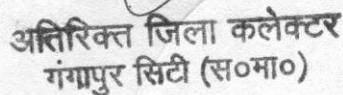 अतिरिक्त जिला कलेक्टर
गंगापुर सिटी (स०मा०)